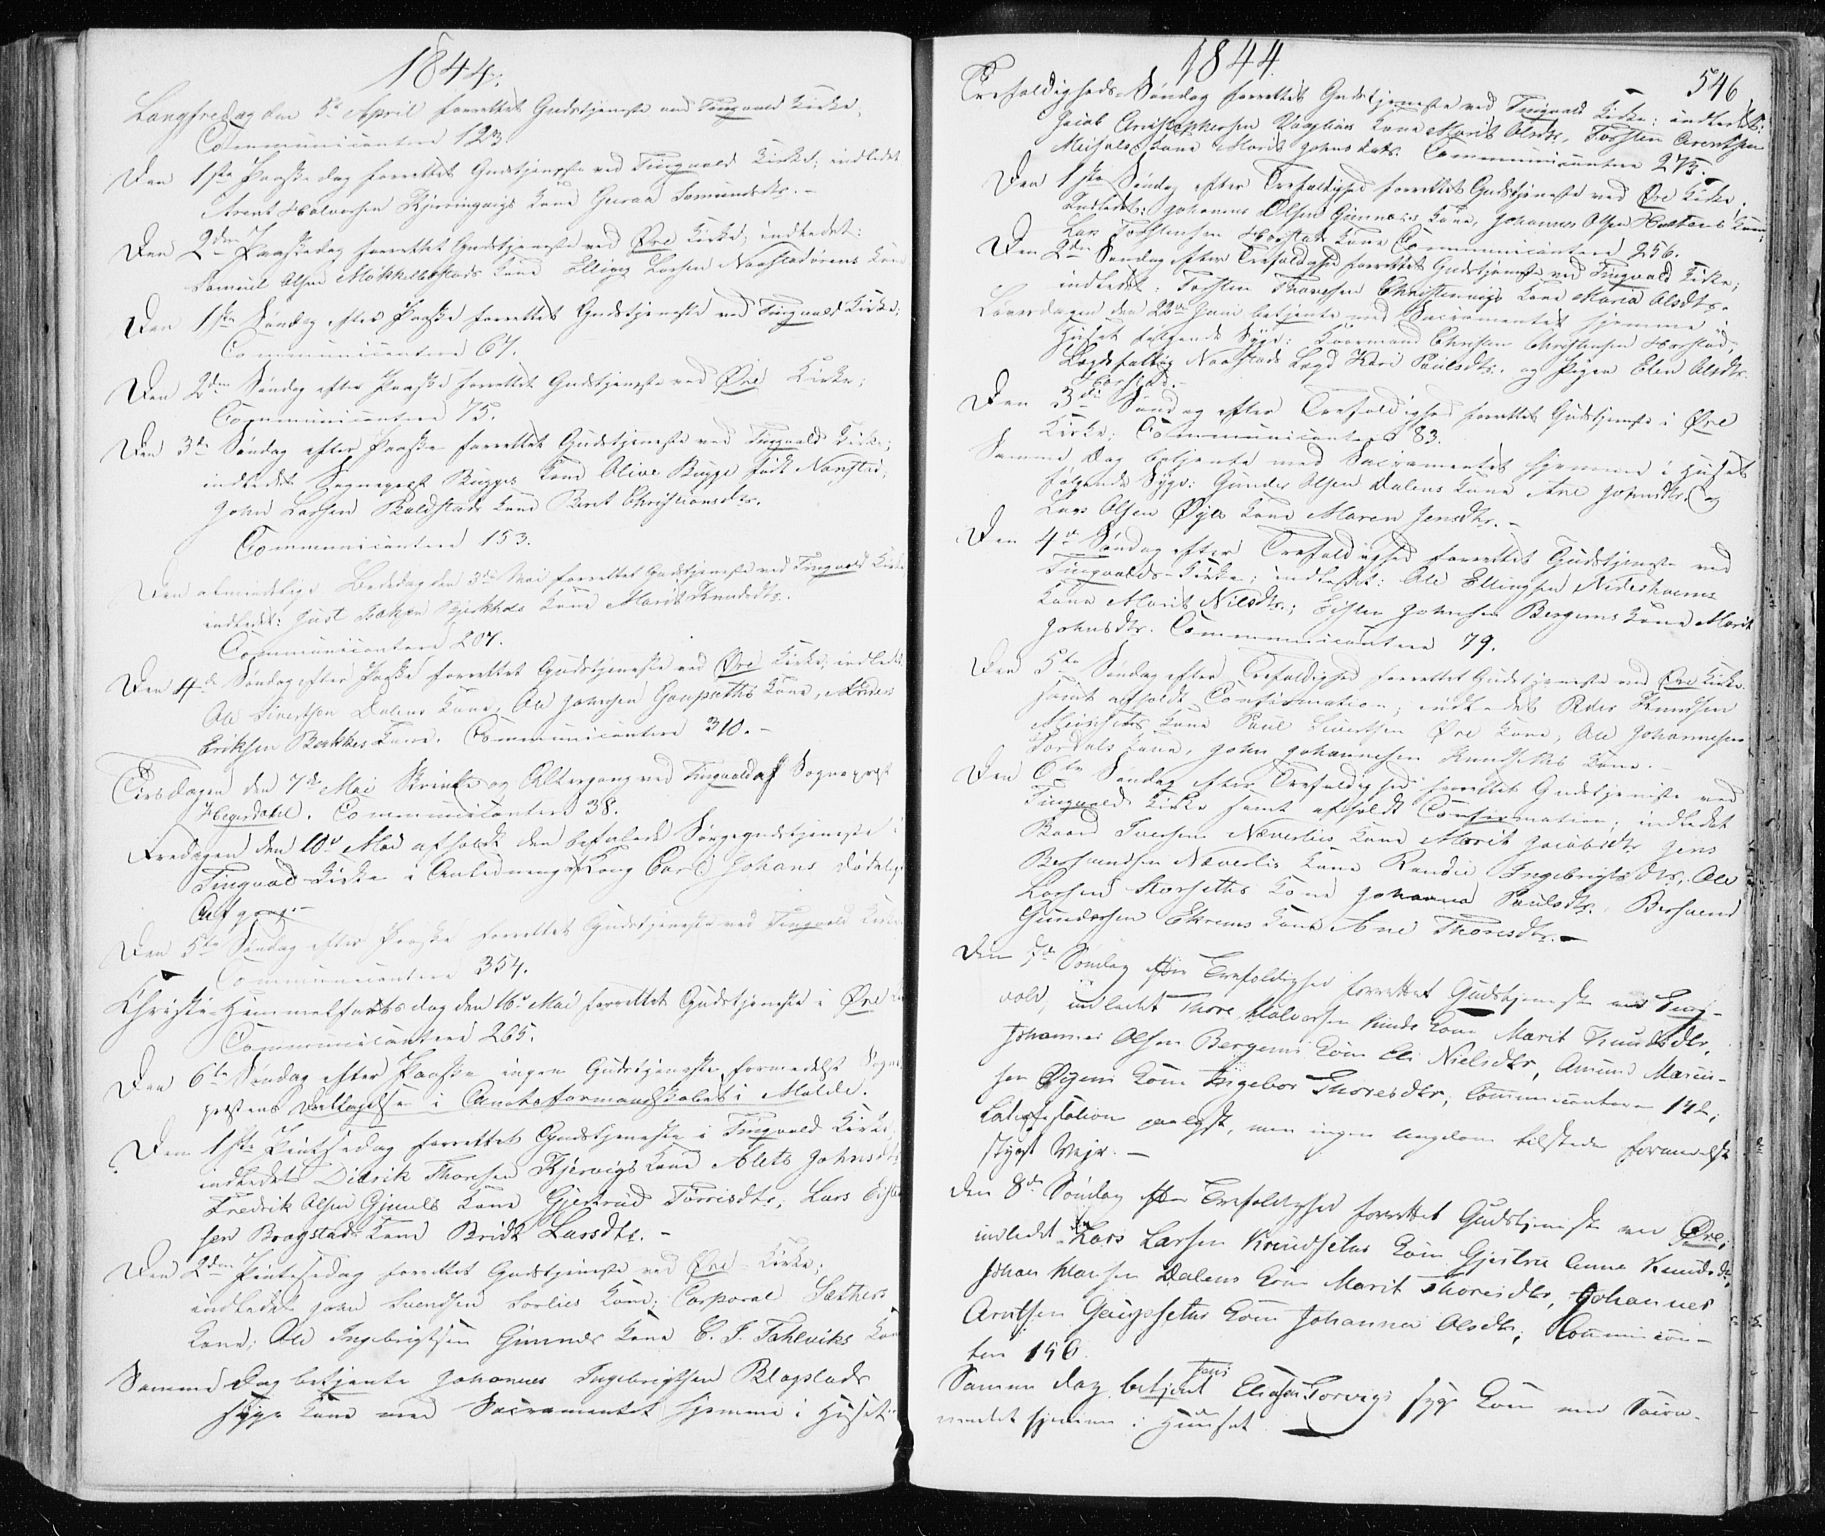 1844.
Langfredag den 5te April forrettet Gudstjeneste ved Tingvold Kirke,
Communicantere 123
Den 1ste Paaskedag forrettet Gudstjeneste ved Tingvold Kirke; indledet
Arent Halvorsen Kjørringvigs Kone Guraa Iversdtr. -
Den 2den Paaskedag forrettet Gudstjeneste ved Øre Kirke, indledet:
Samuel Olsen Kone Elling Larsen Naastadørens Kone
Den 1ste Søndag efter Paaske forrettet Gudstjeneste ved Tingvold Kirke;
Communicantere 67.
Den 2den Søndag efter Paaske forrettet Gudstjeneste ved Øre Kirke;
Communicantere 75.
Den 3die Søndag efter Paaske forrettet Gudstjeneste ved Tingvold Kirke;
indledet Sognepræst Bugges Kone Olive Bugge født
John Larsen Kone Berit Christiansdtr.
Communicantere 153.
Den almindelige Bededag den 3die Mai forrettet Gudstjeneste ved Tingvold Kirke
indledet: Just Kone Marit Knudsdtr.
Communicantere 207.
Den 4de Søndag efter Paaske forrettet Gudstjeneste ved Øre Kirke; indledet
Ole Sivertsen Dalens Kone, Ole Johnsen Gaupseths Kone, Anders
Eriksen Kone. Communicantere 310. -
Tirsdagen den 7de Mai Skrifte og Altergang ved Tingvold af Sognepræst
. Communicantere 38.
Fredagen den 10de Mai afholdt den befalede Sørgegudstjeneste i
Tingvold Kirke i Anledning Kong Carl Johans dødelige
Afgang. -
Den 5te Søndag efter Paaske forrettet Gudstjeneste ved Tingvold Kirke
Communicantere 354.
Christi-Himmelfartsdag den 16de Mai forrettet Gudstjeneste i Øre
Communicantere 265.
Den 6te Søndag efter Paaske ingen Gudstjeneste formedelst Sogne
præstens Deeltagelse i Amtsformandskabet i Molde.
Den 1ste Pintsedag forrettet Gudstjeneste i Tingvold Kirke
indledet Didrik Thoresen Kjørvigs Kone Alets Johnsdtr
Fredrik Olsen Kone Gjertrud Torrisdtr, Lars
sen Bragstad Kone Bridt Larsdtr. -
Den 2den Pintsedag forrettet Gudstjeneste ved Øre Kirke;
indledet John Svendsen Kone; Corporal Sæthers
Kone; Ole Ingebrigtsen Gimnes Kone C. F. Tahlviks Kone
Samme Dag betjente Johannes Ingebrigtsen
syge Kone med Sacramentet hjemme i Huset.
1844
546
Trefoldigheds-Søndag forrettet Gudstjeneste ved Tingvold Kirke; indledet:
Jacob Christophersen Kone Marit Olsdtr, Torsten Arentsen
Meisals Kone Marit Johnsdatr. Communicantere 273.
Den 1ste Søndag efter Trefoldighed forrettet Gudstjeneste ved Øre Kirke.
Indledet: Johannes Olsen Gimnes Kone, Johannes Olsen Kone;
Lars Torstensen Kone Communicantere 256.
Den 2den Søndag efter Trefoldighed forrettet Gudstjeneste ved Tingvold Kirke;
indledet: Torsten Thoresen Christenvigs Kone Maria Olsdtr.
Løverdagen den 22de Juni betjente med Sacramentet hjemme i
Huset følgende Syge: Christen Christensen
Lægd Kari Paulsdtr. og Pigen Elen Olsdtr.
Den 3die Søndag efter Trefoldighed forrettet Gudstjeneste i Øre
Kirke; Communicantere 83.
Samme Dag betjente med Sacramentet hjemme i Huset
følgende Syge: Gunder Olsen Dalens Kone Ane Johnsdtr. og
Lars Olsen Øye Kone Maren Jensdtr. -
Den 4de Søndag efter Trefoldighed forrettet Gudstjeneste ved
Tingvolds-Kirke; indledet: Ole Ellingsen
Kone Marit Nilsdtr; Johnsen Bergems Kone Marit
Johnsdtr. Communicantere 79.
Den 5te Søndag efter Trefoldighed forrettet Gudstjeneste ved Øre Kirke.
samt afholdt Confirmation; indledet Peder Knudsen
Kone Paul Sivertsen Øre Kone, Ole Johannesen
Kone, John Johannesen Kone. -
Den 6te Søndag efter Trefoldighed forrettet Gudstjeneste ved
Tingvold Kirke samt afholdt Confirmation; indledet
Baard Iversen Kone Marit Jacobsdtr Jens
Bersvendsen Kone Randie Ingebrigtsdtr, Ole
Larsen Korsæths Kone Johanna Paulsdtr. Bersvend
Gundersen Ekrems Kone Ane Thoresdtr. -
Den 7de Søndag efter Trefoldighed forrettet Gudstjeneste ved Ting-
vold, indledet Thore Halvorsen Kone Marit Knudsdtr,
Johannes Olsen Bergems Kone Eli Nielsdtr, Amund
sen Øyens Kone Ingebor Thoresdtr, Communicantere 142;
Catechisation paalyst, men ingen Ungdom tilstede formedelst
stygt Vejr. -
Den 8de Søndag efter Trefoldighed forrettet Gudstjeneste ved Øre;
indledet Lars Larsen Knudsetus Kone Gjertru Anna Knudsdr,
Johan Hansen Dalens Kone Marit Thoresdtr, Johannes
Arntsen Gaupsetus Kone Johanna Olsdtr, Communican-
ter 156.
Samme Dag betjent Eliasen Torvigs syge Kone med Sacra-
mentet hjemme i Huuset.